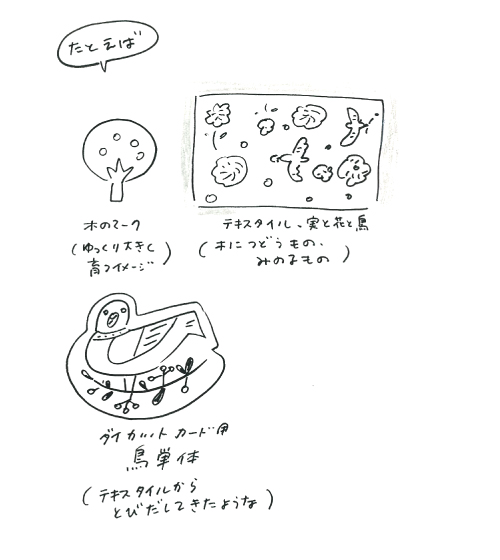 たとえば
木のマーク
(ゆっくり大きく
育つイメージ)
テキスタイル、実と花と鳥
(木につどうもの、
みのるもの)
ダイカット カード用
鳥単体
(テキスタイルから
とびだしてきたような)